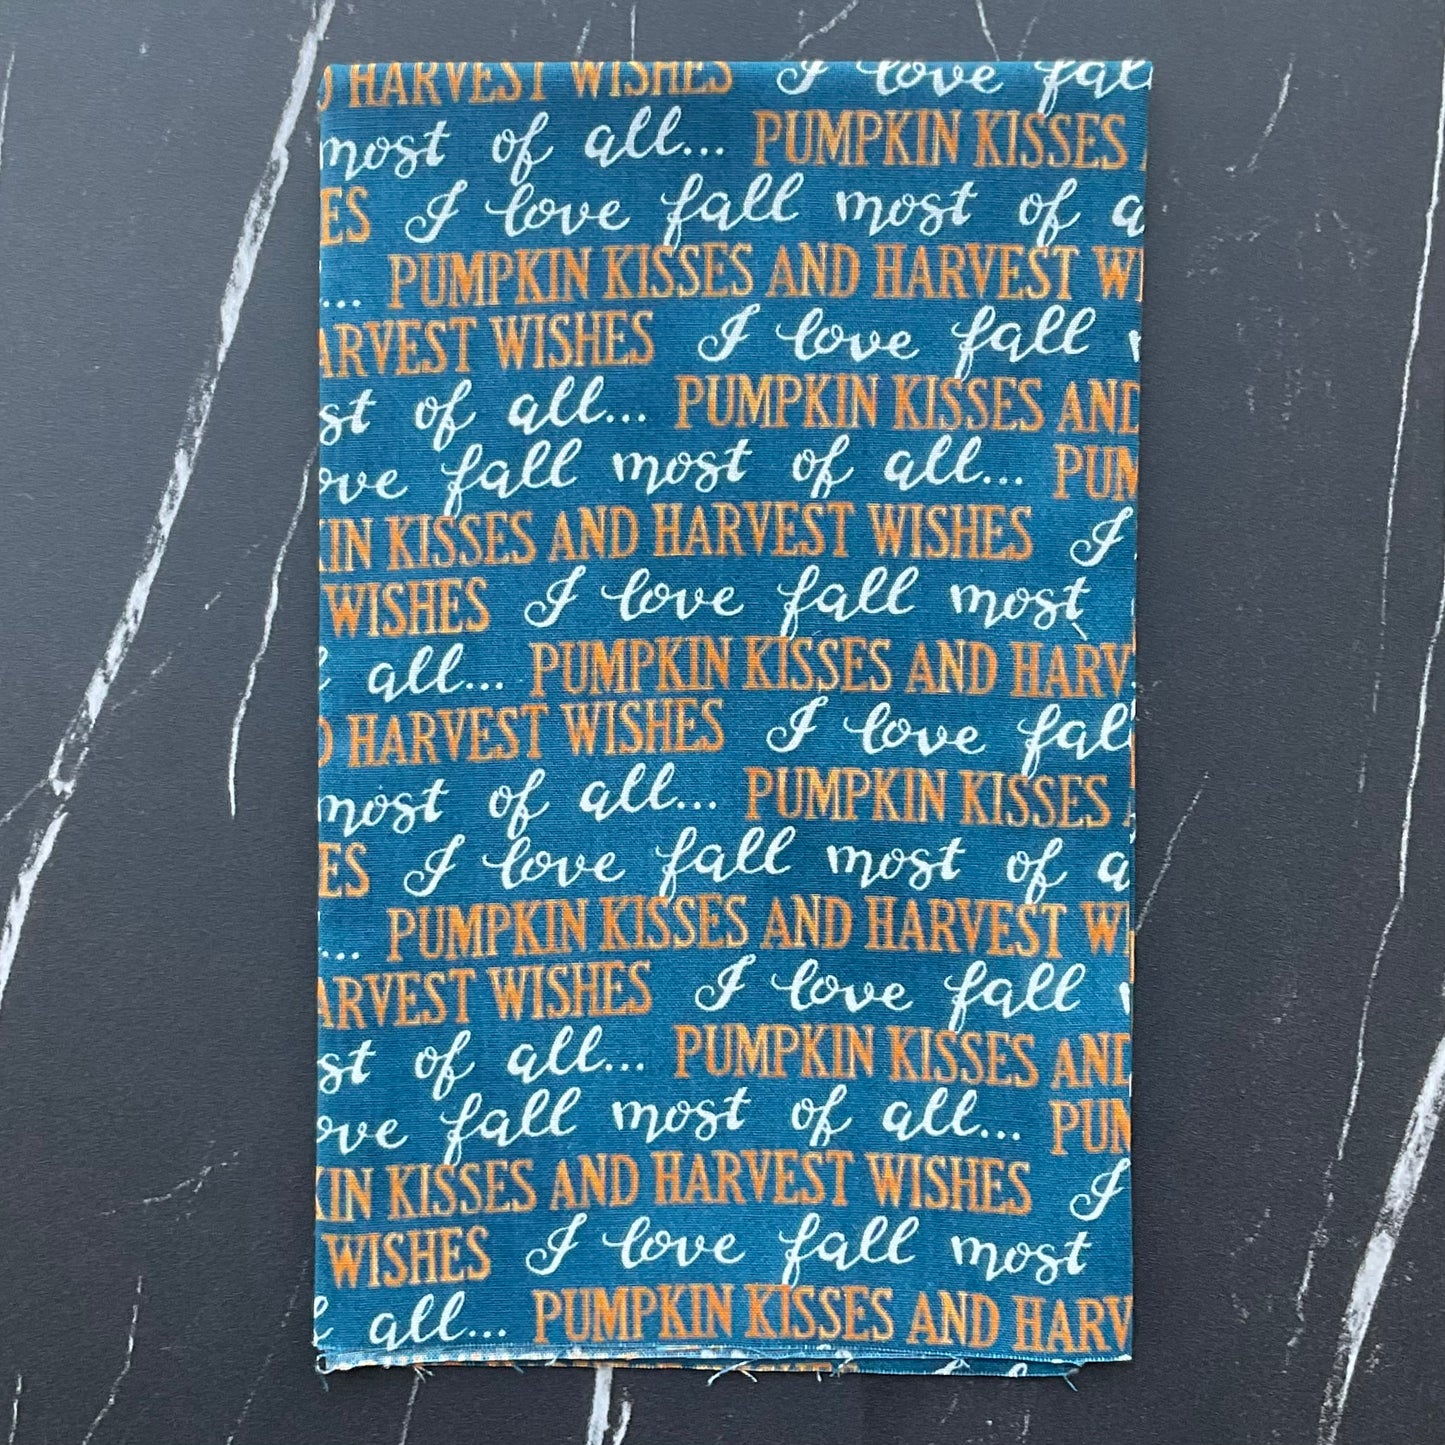 D HARVEST WISHES I love fall
most of all... PUMPKIN KISSES
ES I love fall most of a
... PUMPKIN KISSES AND HARVEST W
ARVEST WISHES I love fall
st of all... PUMPKIN KISSES AND
ove fall most of all... PUM
KIN KISSES AND HARVEST WISHES I
WISHES I love fall most
all... PUMPKIN KISSES AND HARV
D HARVEST WISHES I love fall
most of all... PUMPKIN KISSES
ES I love fall most of a
... PUMPKIN KISSES AND HARVEST W
ARVEST WISHES I love fall
st of all... PUMPKIN KISSES AND
ove fall most of all... PUM
KIN KISSES AND HARVEST WISHES I
WISHES I love fall most
all... PUMPKIN KISSES AND HARV